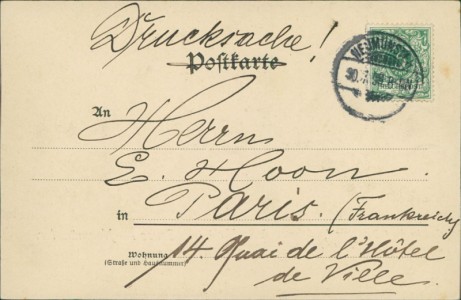 Drucksache!
Postkarte
NEUMÜNSTER
An
Herrn
E. Hoon.
in Paris. (Frankreich)
Wohnung 14. Quai de l'Hôtel
(Straße und Hausnummer)
de Ville.